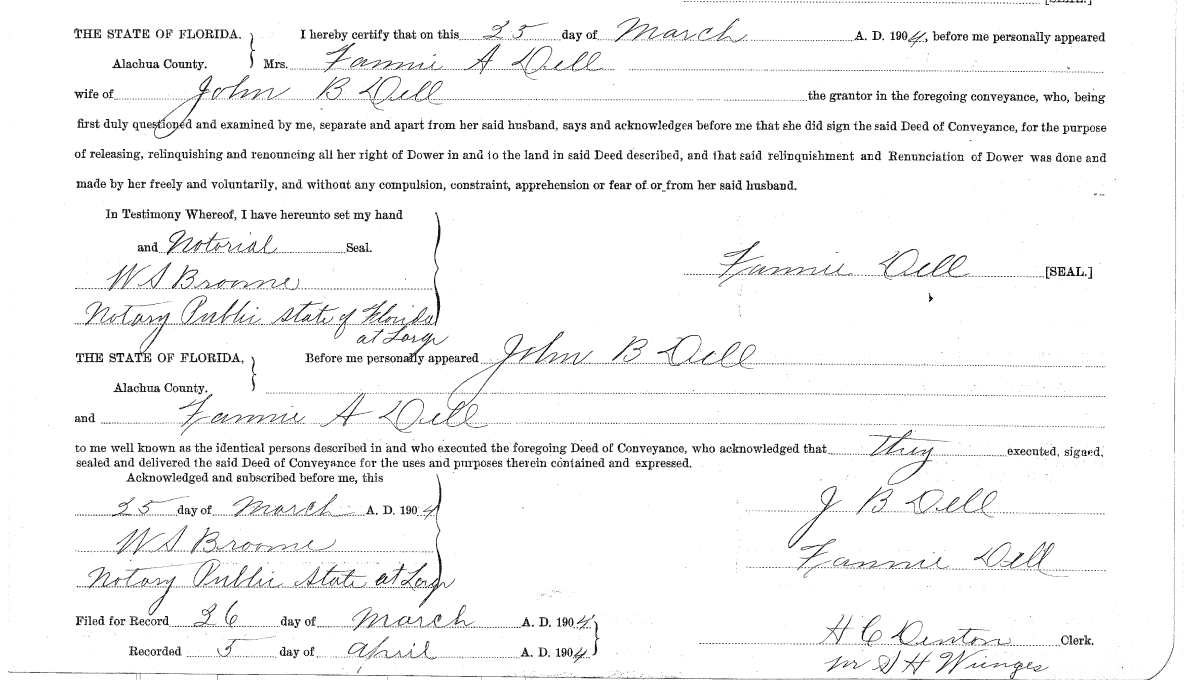 [SEAL.]
THE STATE OF FLORIDA. I hereby certify that on this 25 day of March A. D. 1904, before me personally appeared
Alachua County. Mrs. Fannie A Dell
wife of John B Dell the grantor in the foregoing conveyance, who, being
first duly questioned and examined by me, separate and apart from her said husband, says and acknowledges before me that she did sign the said Deed of Conveyance, for the purpose
of releasing, relinquishing and renouncing all her right of Dower in and to the land in said Deed described, and that said relinquishment and Renunciation of Dower was done and
made by her freely and voluntarily, and without any compulsion, constraint, apprehension or fear of or from her said husband.
In Testimony Whereof, I have hereunto set my hand
and Notorial Seal.
Fannie Dell [SEAL.]
W S Broome
Notary Public State of Florida
at Large
THE STATE OF FLORIDA, Before me personally appeared John B Dell
Alachua County.
and Fannie A Dell
to me well known as the identical persons described in and who executed the foregoing Deed of Conveyance, who acknowledged that they executed, signed,
sealed and delivered the said Deed of Conveyance for the uses and purposes therein contained and expressed.
Acknowledged and subscribed before me, this
25 day of March A. D. 1904
J B Dell
W S Broome
Fannie Dell
Notary Public State at Large
Filed for Record 26 day of March A. D. 1904
H C Denton Clerk.
Recorded 5 day of April A. D. 1904
S H Wienges